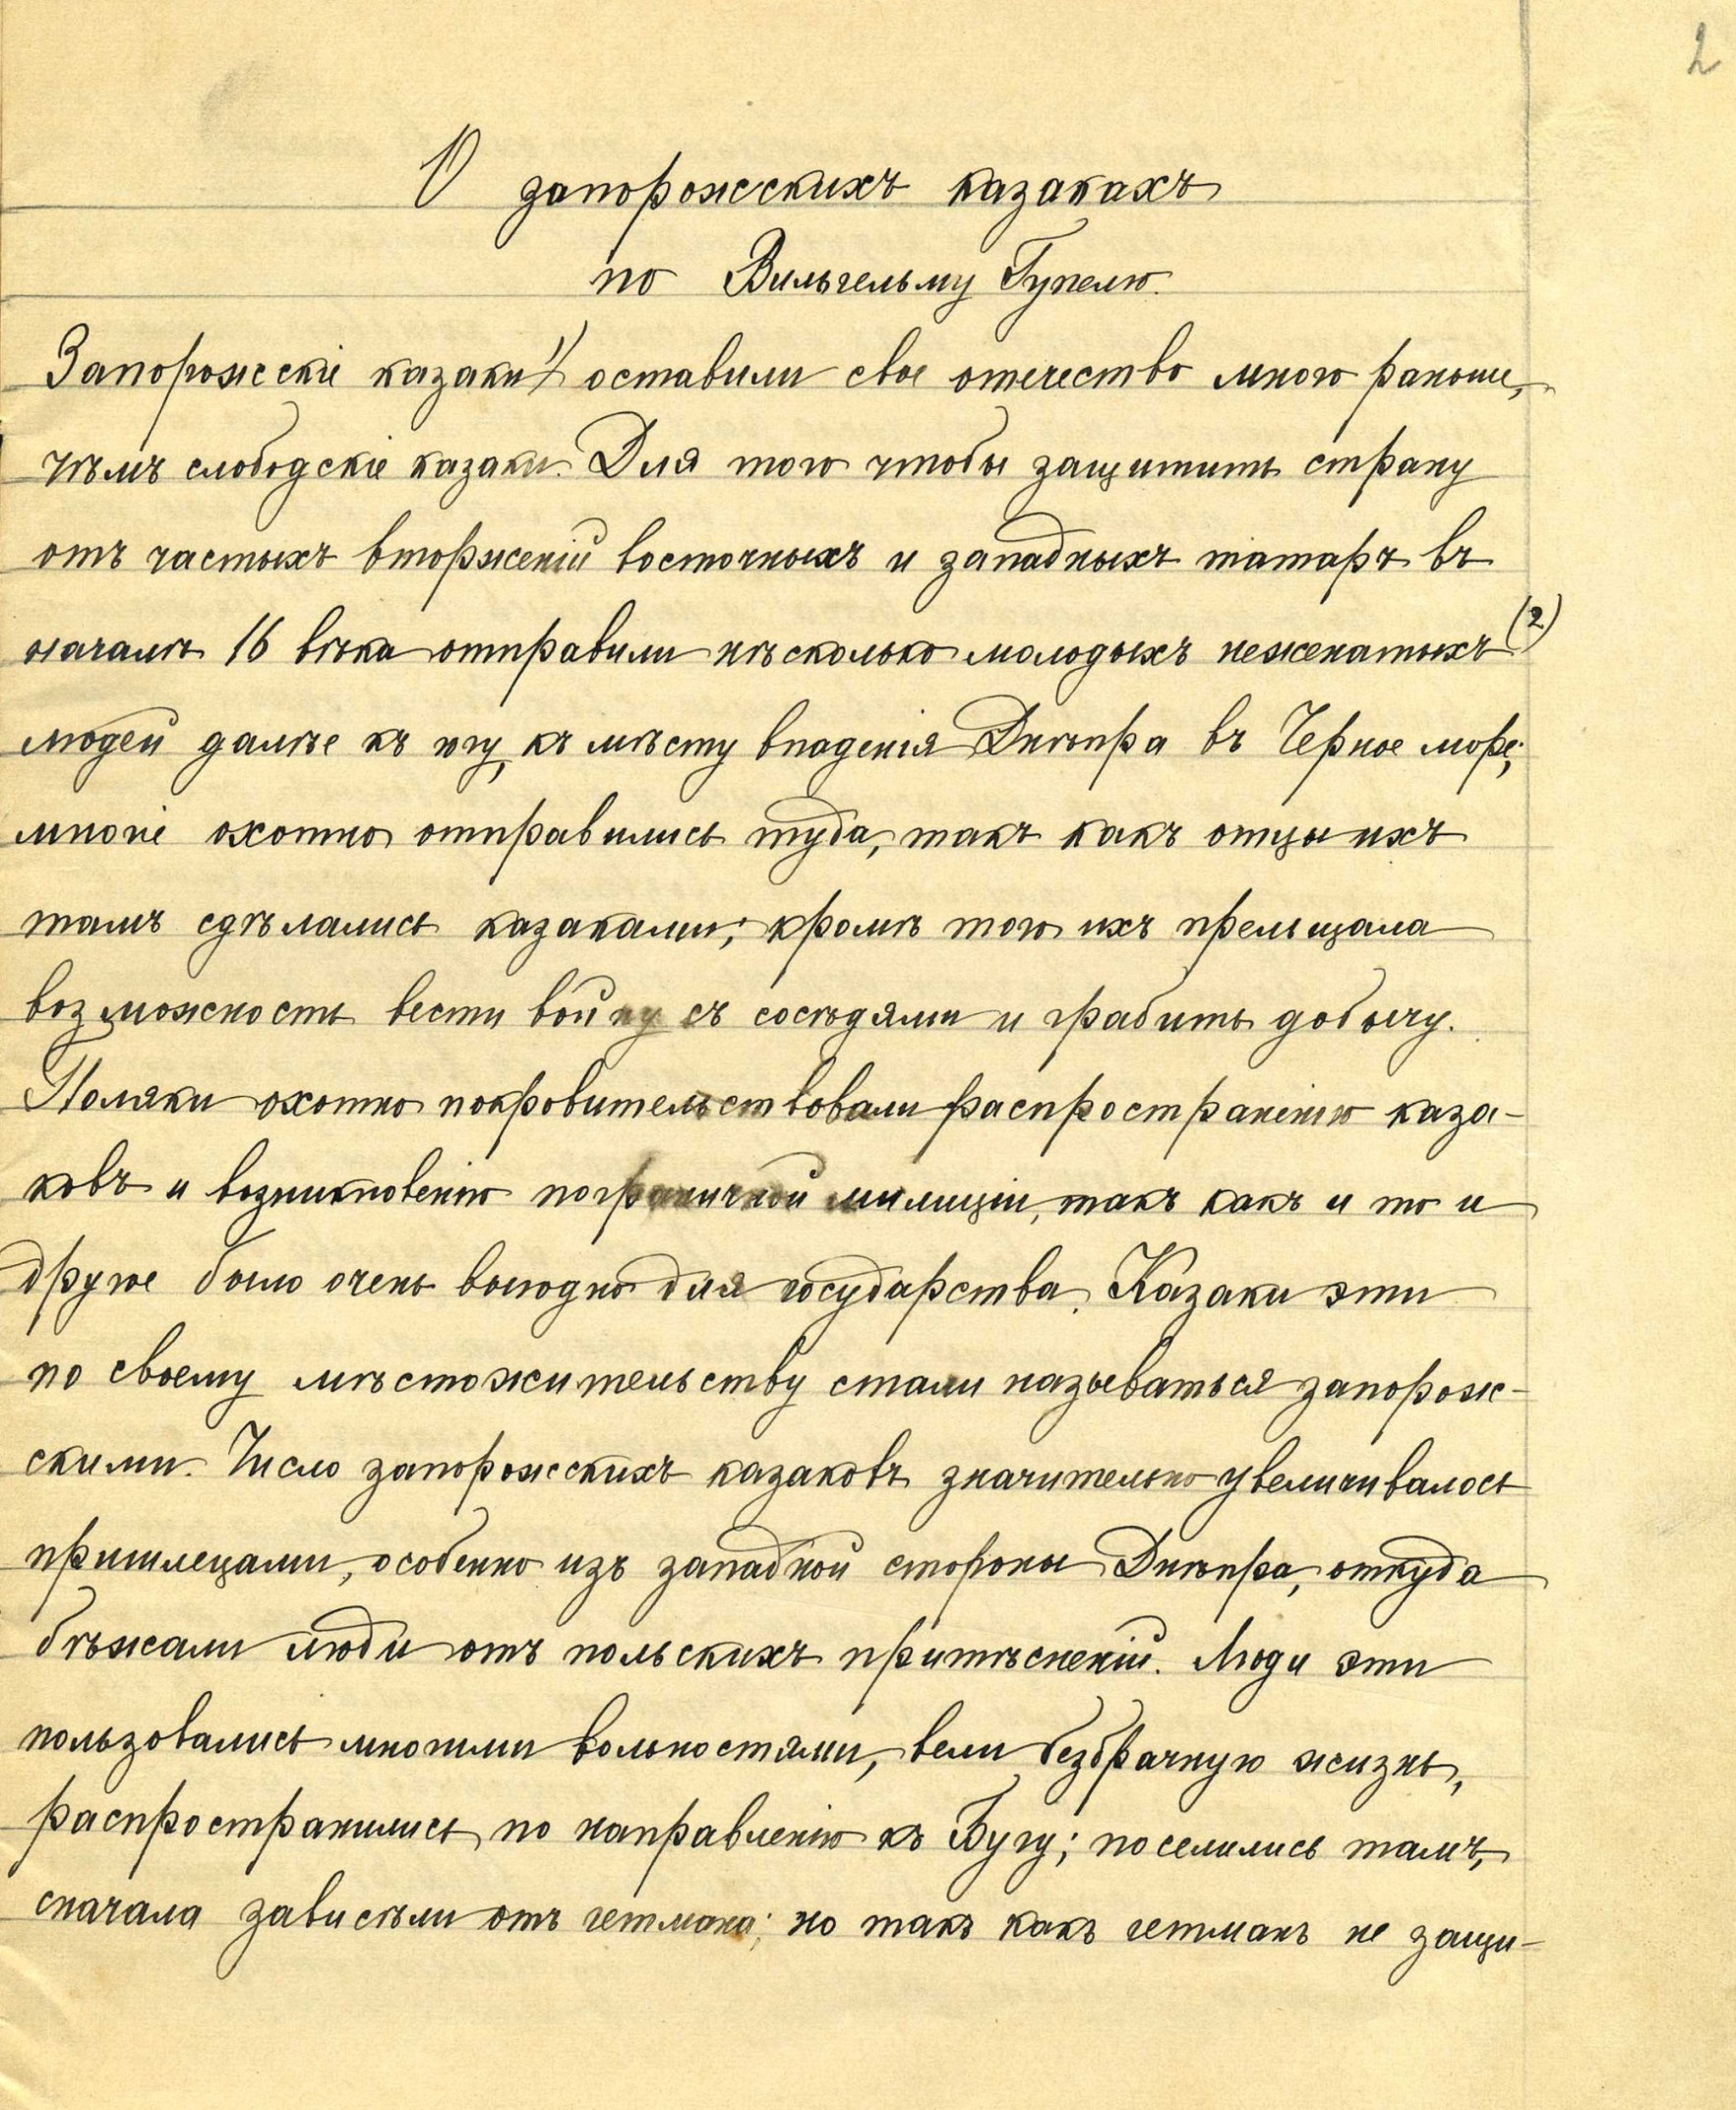 2
О запорожскихъ казакахъ
по Вильгельму Гупелю.
Запорожскіе казаки 1) оставили свое отечество много раньше,
чѣмъ слободскіе казаки. Для того чтобы защитить страну
отъ частыхъ вторженій восточныхъ и западныхъ татаръ въ
началѣ 16 вѣка отправили нѣсколько молодыхъ неженатыхъ (2)
людей далѣе къ югу, къ мѣсту впаденія Днѣпра въ Черное море;
многіе охотно отправились туда, такъ какъ отцы ихъ
тамъ сдѣлались казаками; кромѣ того ихъ прельщала
возможность вести войну съ сосѣдями и грабить добычу.
Поляки охотно покровительствовали распространенію каза-
ковъ и возникновенію пограничной милиціи, такъ какъ и то и
другое было очень выгодно для государства. Казаки эти
по своему мѣстожительству стали называться запорож-
скими. Число запорожскихъ казаковъ значительно увеличивалось
пришлецами, особенно изъ западной стороны Днѣпра, откуда
бѣжали люди отъ польскихъ притѣсненій. Люди эти
пользовались многими вольностями, вели безбрачную жизнь,
распространились по направленію къ Бугу; поселились тамъ,
сначала зависѣли отъ гетмана; но такъ какъ гетманъ не защи-